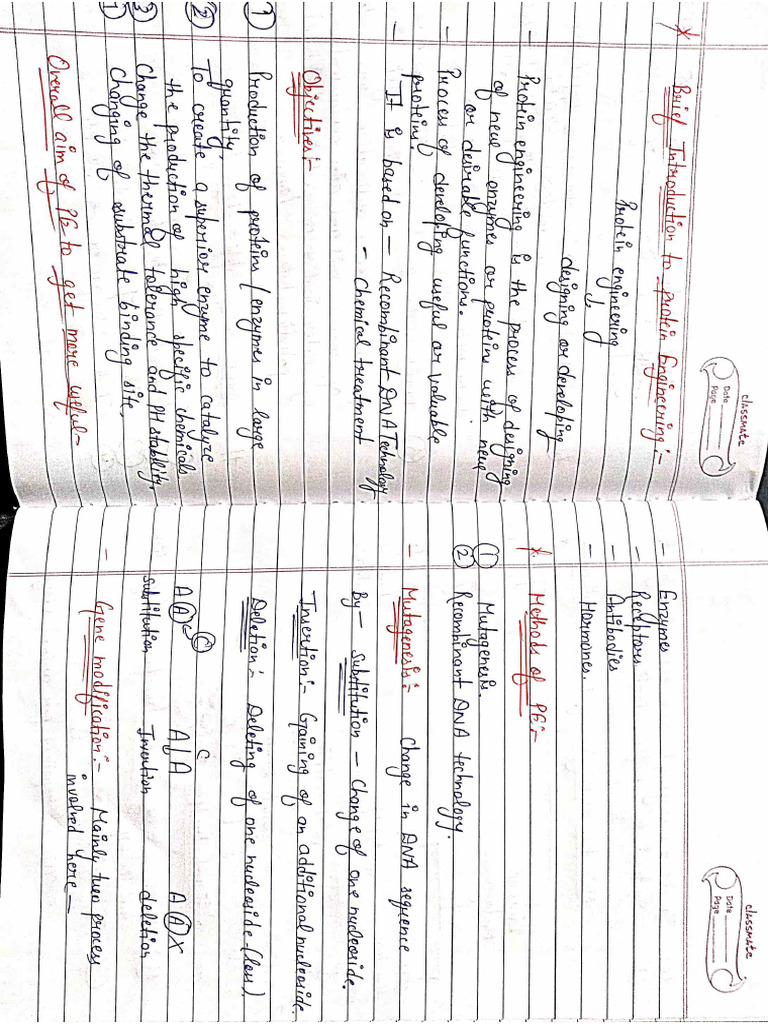 classmate
Date
Page
* Brief Introduction to protein Engineering :-
Protein engineering
↓
designing or developing
- Protein engineering is the process of designing
of new enzymes or proteins with new
or desirable functions.
- Process of developing useful or valuable
proteins.
- It is based on - Recombinant DNA Technology.
- Chemical treatment
Objectives:-
① Production of proteins / enzymes in large
quantity,
② To create a superior enzyme to catalyze
the production of high specific chemicals
③ Change the thermal tolerance and PH stability,
① Changing of substrate binding site,
Overall aim of PE to get more useful -
classmate
Date
Page
- Enzymes
- Receptors
- Antibodies
- Hormones.
* Methods of PE:-
① Mutagenesis.
② Recombinant DNA technology.
- Mutagenesis:- Change in DNA sequence
By - Substitution - Change of one nucleoside.
Insertion:- Gaining of an additional nucleoside.
Deletion:- Deleting of one nucleoside-(loss)
C C
A A A A A A X
substitution Insertion deletion
- Gene modification:- Mainly two process
involved here -